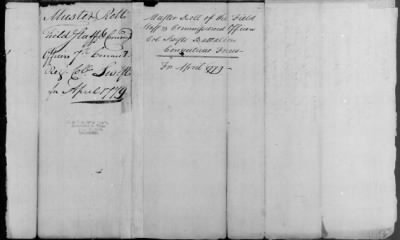 Muster Roll
Field Staff & Commd
Officers of the Connect
Reg. Colo Swift
for April 1779
Muster Roll of the Field
Staff & Commissioned Officers
Col. Swifts Battalion
Connecticut Forces
For April 1779